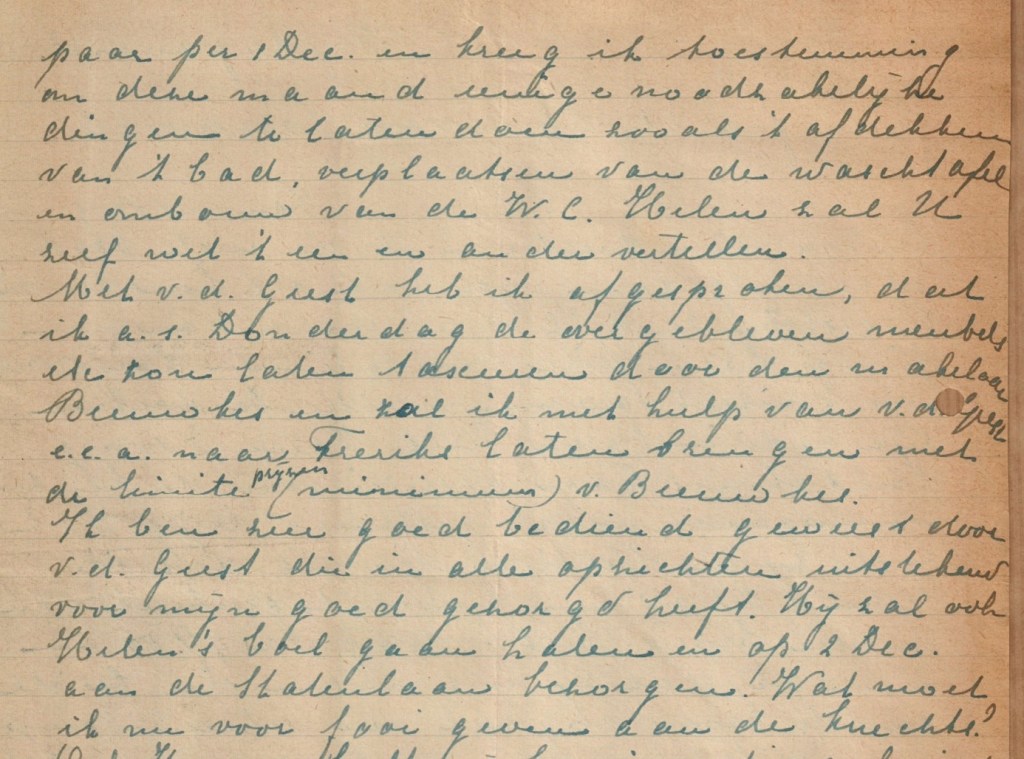 paar per 1 Dec. en kreeg ik toestemming
om deze maand eenige noodzakelijke
dingen te laten doen zooals 't afdekken
van 't bad, verplaatsen van de waschtafel
en ombouw van de W.C. Helen zal U
zelf wel 't een en ander vertellen.
Met v.d. Geest heb ik afgesproken, dat
ik a.s. Donderdag de overgebleven meubels
etc zou laten taxeeren door den makelaar
en zal ik met hulp van v.d. Geest
e.e.a. naar Freriks laten brengen met
de limite prijzen (minimum) v.
Ik ben zeer goed bediend geweest door
v.d. Geest die in alle opzichten uitstekend
voor mijn goed gezorgd heeft. Hij zal ook
Helen's boel gaan halen en op 2 Dec.
aan de Statenlaan bezorgen. Wat moet
ik nu voor fooi geven aan de knechts?